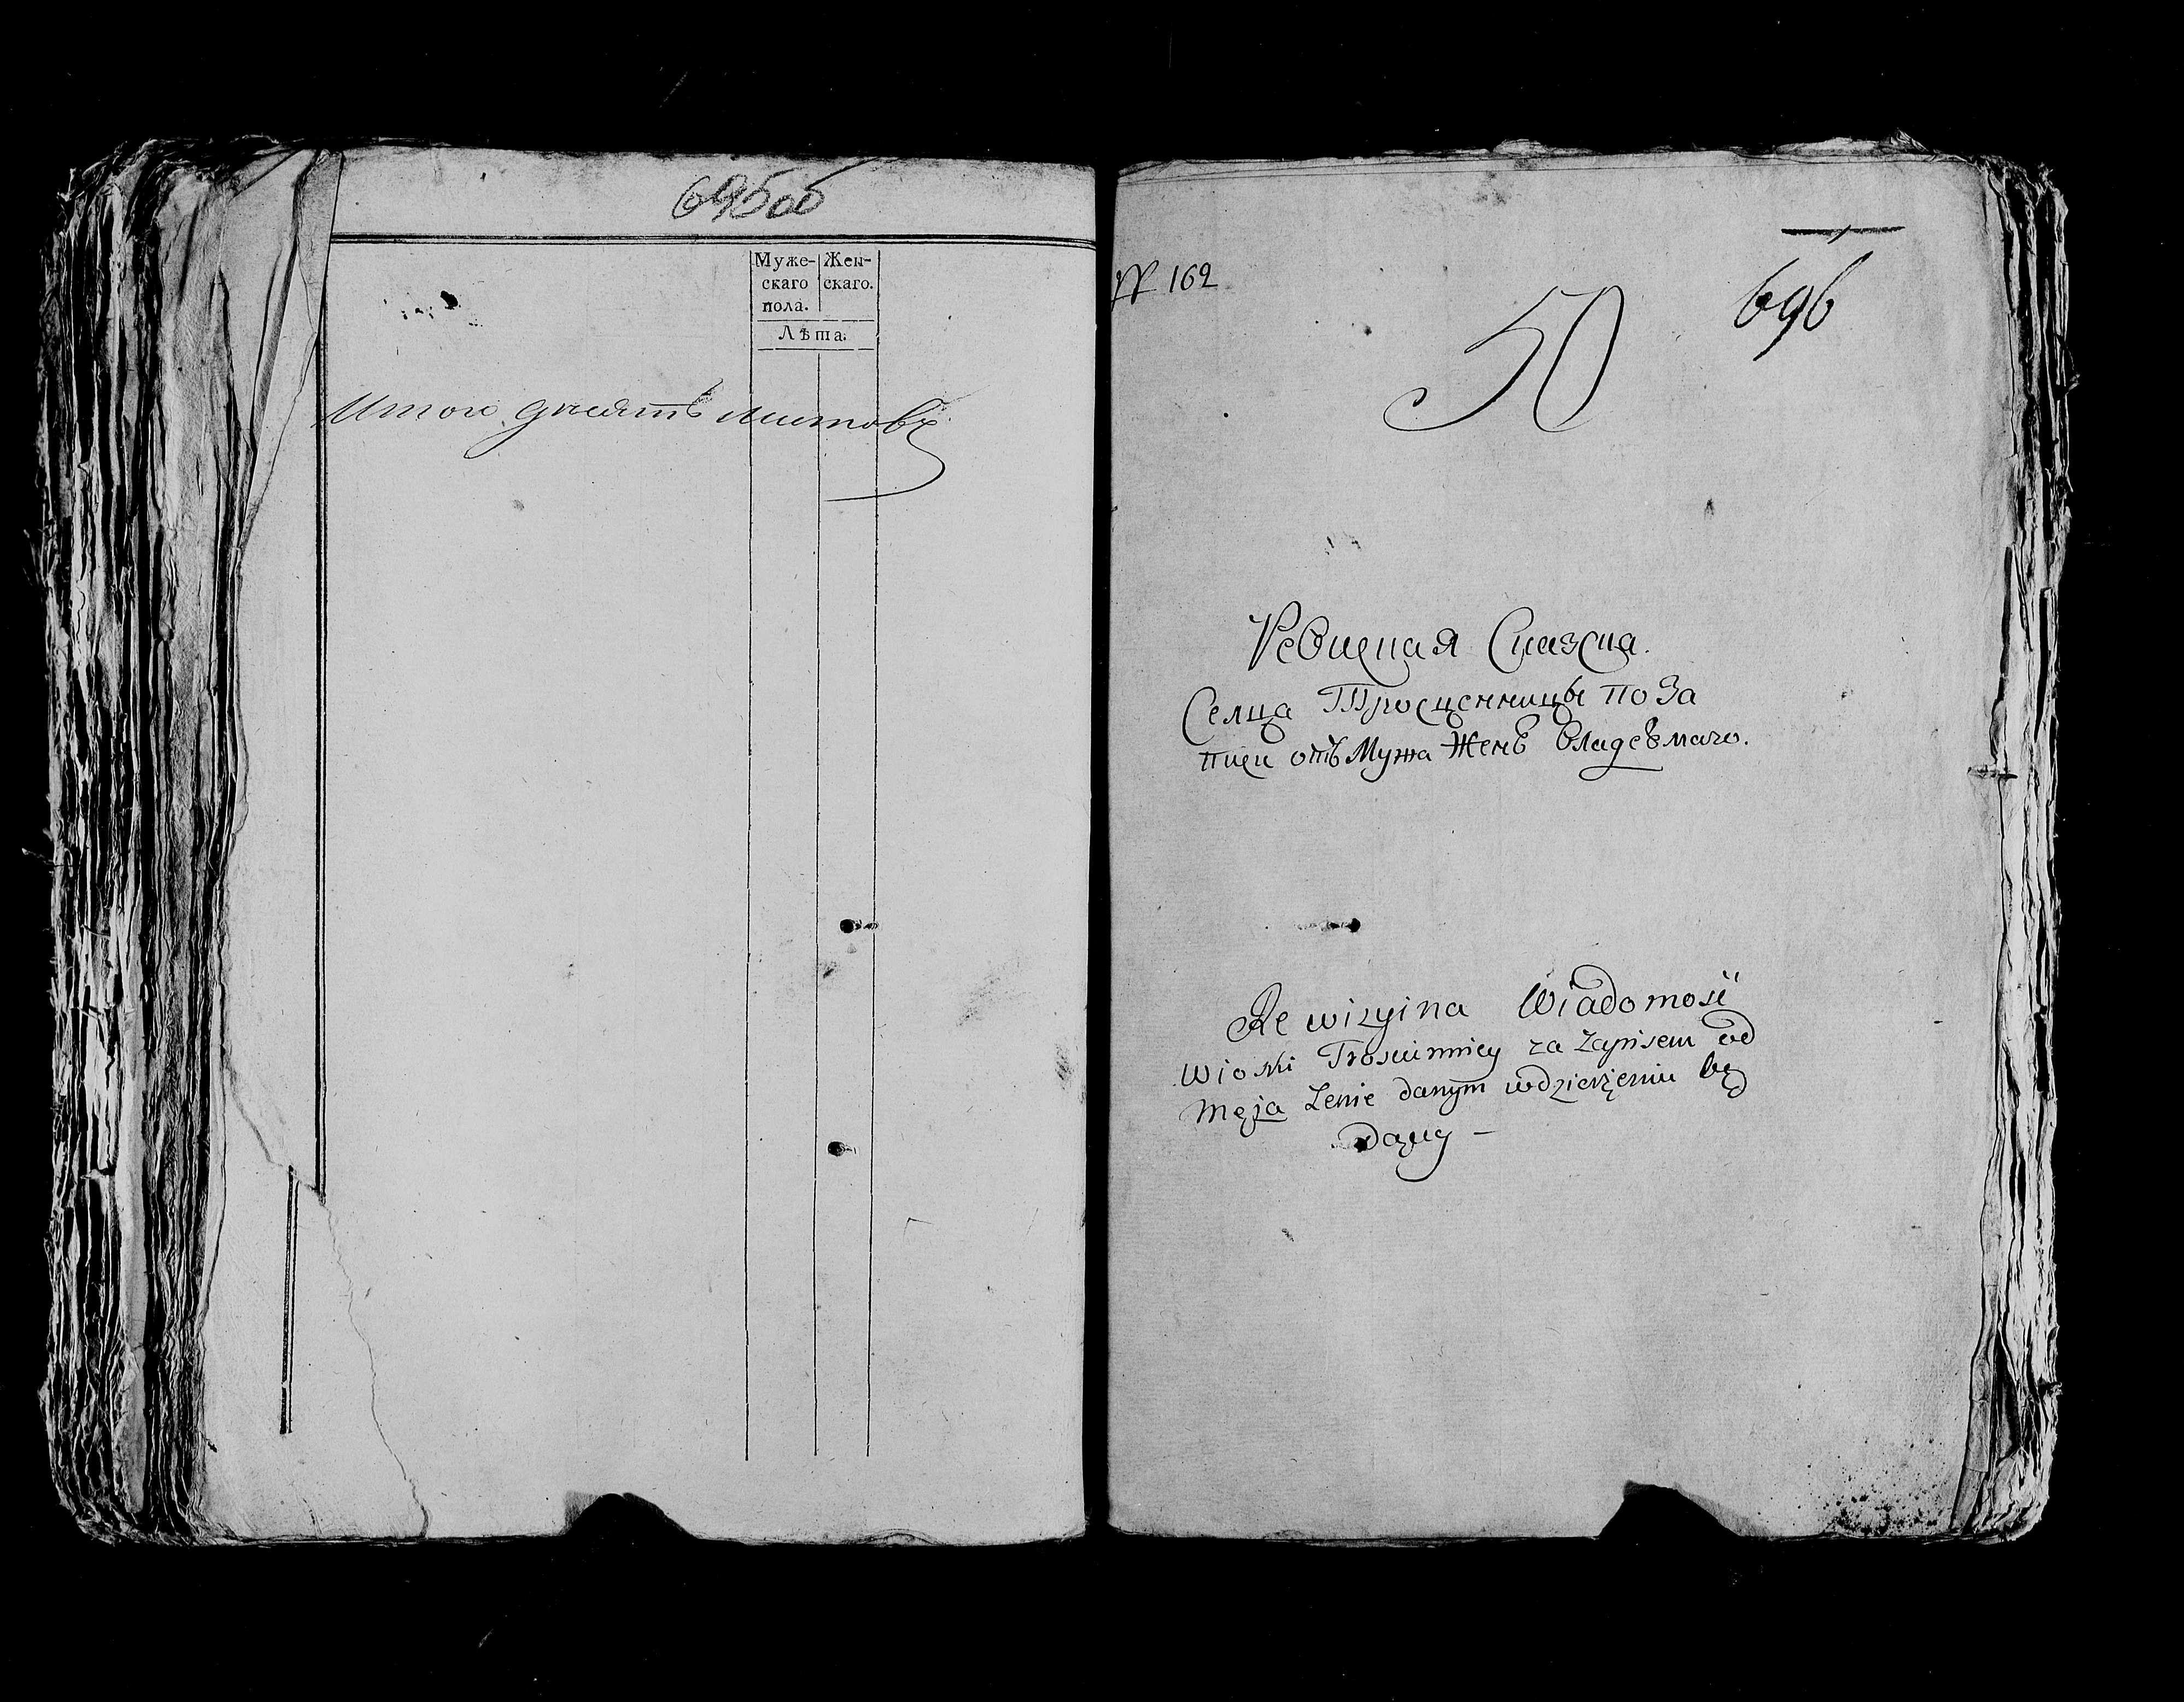 695об
Муже- Жен-
скаго скаго.
пола.
Лѣта.
Итого десять листовъ
№ 162
50
696
Ревиская Сказка.
Селца Тросценницы по за
писи отъ Мужа Женѣ Владеемаго.
Rewizyina Wiadomość
Wioski Trościennicy za Zapisem od
Męża Żenie danym w dzierżeniu bę
dący —